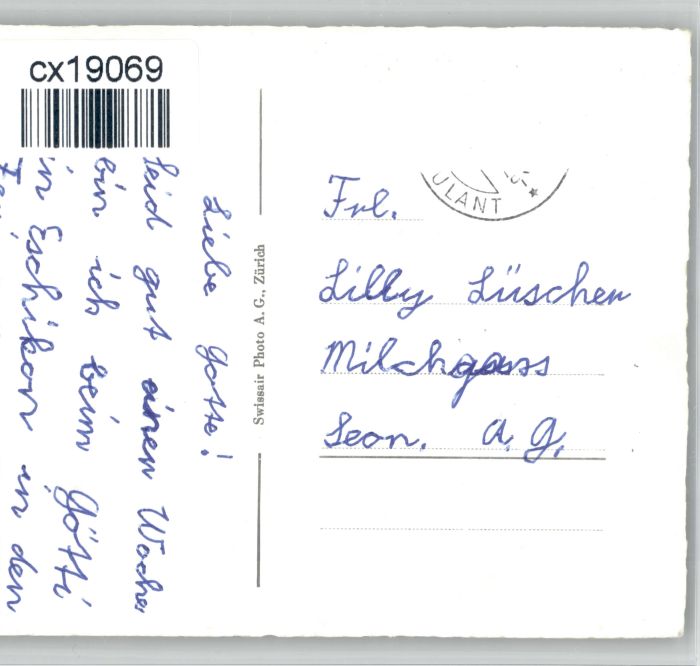 cx19069
Liebe Gotte!
seid gut einen Woche
bin ich beim Götti
in Eschikon in den
Swissair Photo A. G., Zürich
ULANT
Frl.
Lilly Lüscher
Milchgass
Seon. A. G.